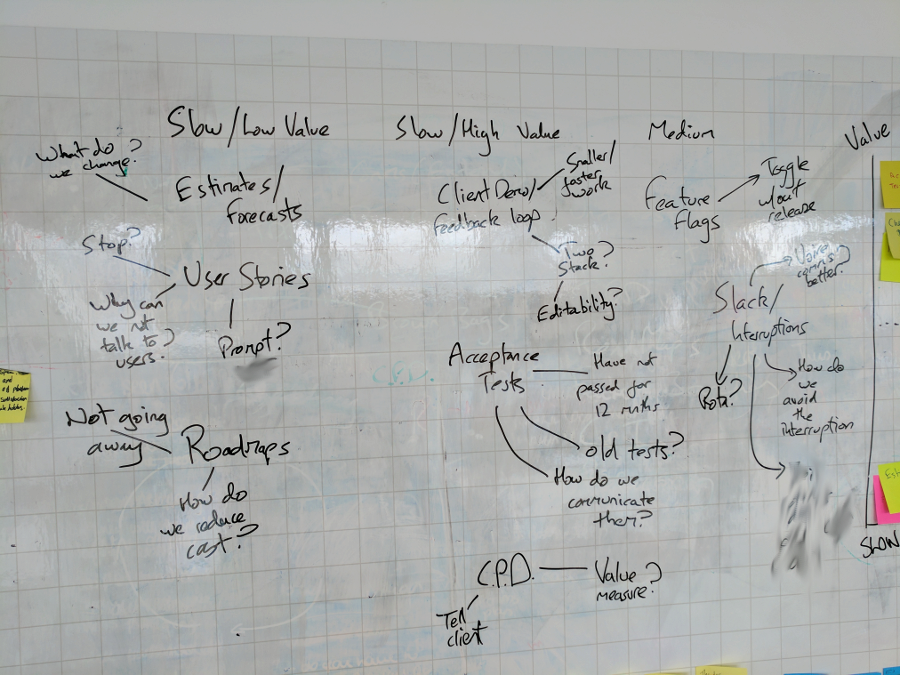 Slow/Low Value
What do
we change?
Estimates/
forecasts
Stop?
User Stories
Why can
we not
talk to
users?
Prompt?
Not going
away
Roadmaps
How do
we reduce
cost?
Slow/High Value
Client Demo/
feedback loop
Smaller/
faster
work
Two
Stack?
Editability?
Acceptance
Tests
Have not
passed for
12 mnths
old tests?
How do we
communicate
them?
C.P.D.
Value?
measure?
Tell
client
Medium
Feature
flags
Toggle
w/out
release
Slack/
Interruptions
comms
better?
Rota?
How do
we
avoid
the
interruption
Value
SLOW